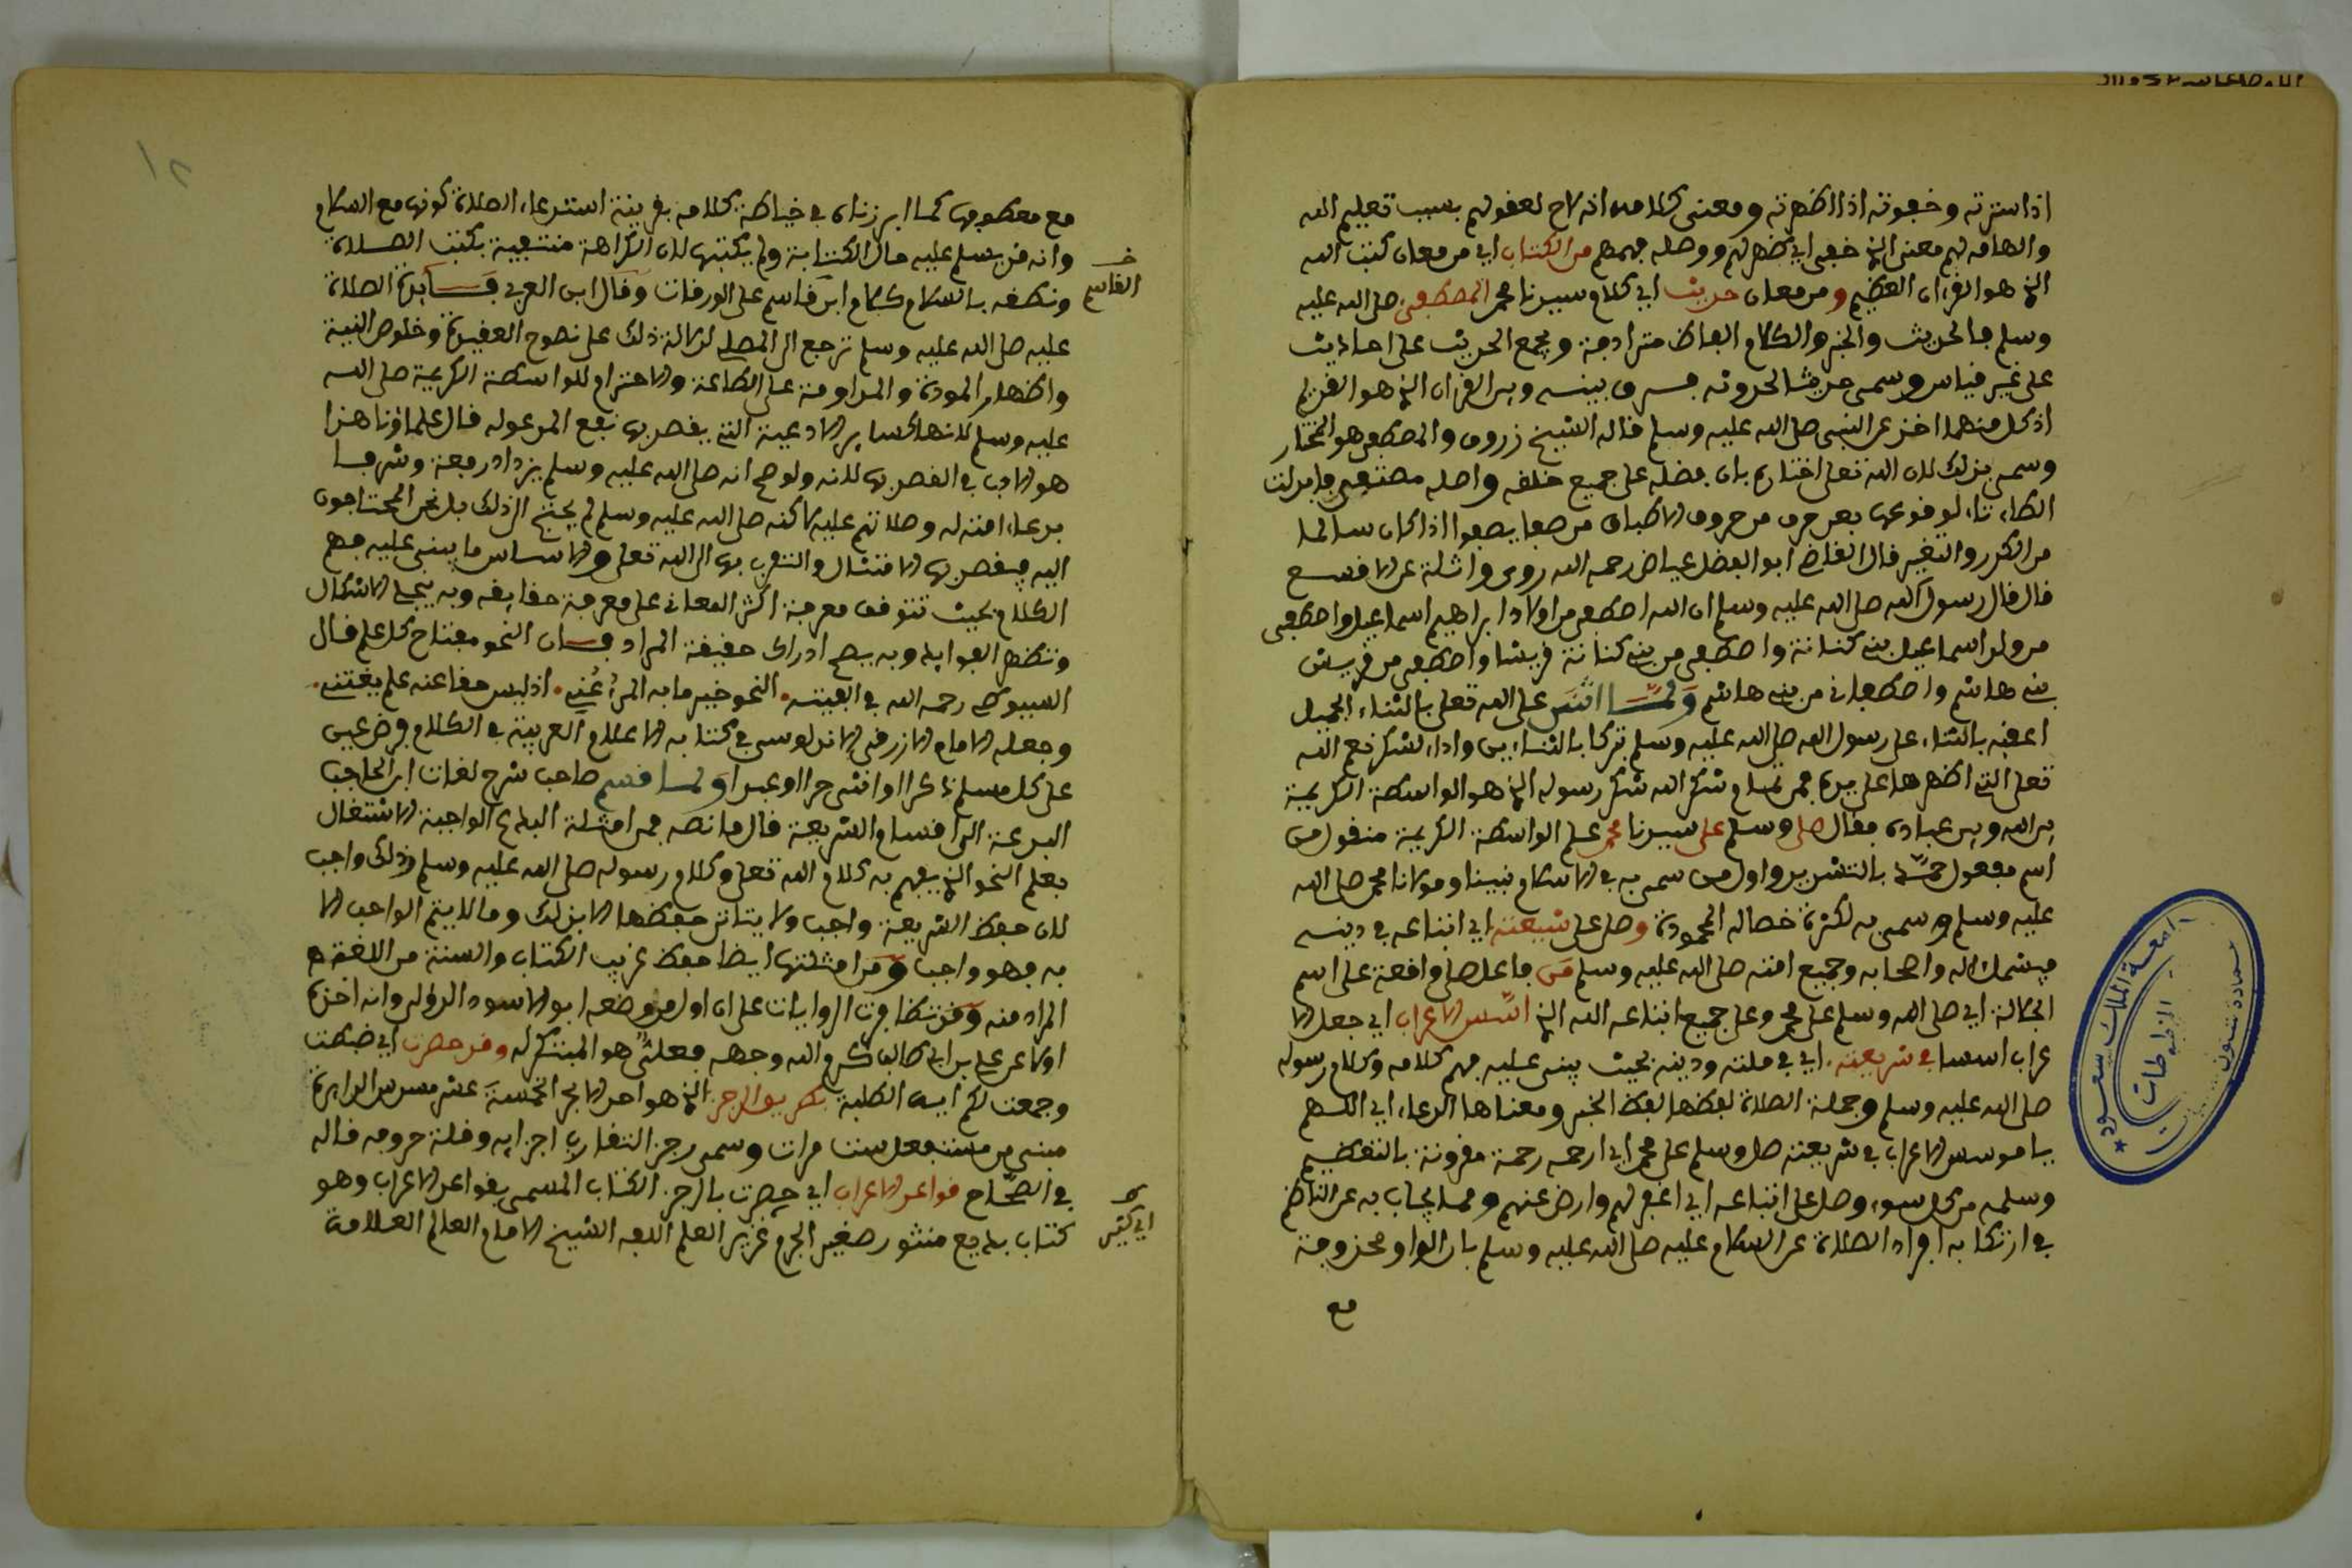 اذا سترته وخفوته اذا اظهرته ومعنى كلامه انه لاح لعقولهم بسبب تعليم الله
والهامه لهم معنى الذي خفى اي ظهر لهم ووصله فهمهم من الكتاب اي من معان كتب الله
الذي هو القرءان العظيم ومن معان حديث اي كلام سيدنا محمد المصطفى صلى الله عليه
وسلم فالحديث والخبر والكلام الفاظ مترادفة ويجمع الحديث على احاديث
على غير قياس وسمى حديثا لحدوثه فسرق بينه وبين القرءان الذي هو القديم
اذ كل منهما اخذ عن النبى صلى الله عليه وسلم قاله الشيخ زروق والمصطفى هو المختار
وسمى بذلك لان الله تعلى اختاره بان فضله على جميع خلقه واصله مصتفى فابدلت
الطاء تاء لوقوعها بعد حرف من حروف الاطباق من صفا يصفوا اذا كان سالما
من الكدر والتغير قال القاضي ابو الفضل عياض رحمه الله روى واثلة عن الافسع
قال قال رسول الله صلى الله عليه وسلم ان الله اصطفى من اولاد ابراهيم اسماعيل واصطفى
من ولد اسماعيل بني كنانة واصطفى من بني كنانة قريشا واصطفى من قريش
بني هاشم واصطفاني من بني هاشم ولما اثنى على الله تعلى بالثناء الجميل
اعقبه بالثناء على رسول الله صلى الله عليه وسلم تبركا بالثناءين واداء لشكر نعم الله
تعلى التي اظهرها على يده فمن تمام شكر الله شكر رسوله الذي هو الواسطة الكريمة
بين الله وبين عباده فقال صلى وسلم على سيدنا محمد علم الواسطة الكريمة منقول من
اسم مفعول حمّد بالتشديد واول من سمى به في الاسلام نبينا ومولانا محمد صلى الله
عليه وسلم وسمى به لكثرة خصاله المحمودة وصل على شيعته اي اتباعه في دينه
فيشمل اله واصحابه وجميع امته صلى الله عليه وسلم من فاعل صلى واقعة على اسم
الجلالة اي صلى الله وسلم على محمد وعلى جميع اتباعه الله الذي اسّس الاعراب اي جعل الا
عراب اسسا في شريعته اي في ملته ودينه بحيث يبنى عليه فهم كلامه وكلام رسوله
صلى الله عليه وسلم وجملة الصلاة لفظها لفظ الخبر ومعناها الدعاء اي اللهم
يا موسس الاعراب في شريعته صل وسلم على محمد اي ارحمه رحمة مقرونة بالتعظيم
وسلمه من كل سوء وصل على اتباعه اي اغفر لهم وارض عنهم ومما يجاب به عن الناظم
في ارتكابه افراد الصلاة عن السلام عليه صلى الله عليه وسلم بان الواو محذوفة
مع
جامعة الملك سعود
المخطوطات
١٢
مع معطوفها كما ابرزناه في خياطة كلامه بقرينة استدعاء الصلاة كونها مع السلام
وانه قد يسلم عليه حال الكتابة ولم يكتبها لان الكراهة منتفية بكتب الصلاة
ونطقه بالسلام كلام ابن قاسم على الورقات وقال ابن العربي فسائدة الصلاة
عليه صلى الله عليه وسلم ترجع الى المصلي لدلالة ذلك على نصوح العقيدة وخلوص النية
واظهار المودة والمداومة على الطاعة والاحترام للواسطة الكريمة صلى الله
عليه وسلم لانها كساير الادعية التي يقصد بها نفع المدعو له قال علماؤنا هذا
هو الادب في القصد بها لانه ولو صح انه صلى الله عليه وسلم يزداد رفعة وشرفا
بدعاء امته له وصلاتهم عليه لاكنه صلى الله عليه وسلم لم يحتج الى ذلك بل نحن المحتاجون
اليه فيقصد بها الامتثال والتقرب بها الى الله تعلى والاساس ما يبنى عليه فهم
الكلام بحيث تتوقف معرفة اكثر المعاني على معرفة حقايقه وبه ينجلى الاشكال
وتظهر الفوايد وبه يصح ادراك حقيقة المراد فسان النحو مفتاح كل علم قال
السيوطي رحمه الله في الفيته النحو خير ما به المرء عُني اذ ليس حقا عنه علم يغتني
وجعله الامام الازرقي الاندلوسي في كتابه الاعلام العربية في الكلام فرض عين
على كل مسلم ذكرا او انثى حرا او عبدا ولما قسم صاحب شرح لغات ابن الحاجب
البدعة الى اقسام الشريعة قال ما نصه فمن امثلة البدع الواجبة الاشتغال
بعلم النحو الذي يفهم به كلام الله تعلى وكلام رسوله صلى الله عليه وسلم وذلك واجب
لان حفظ الشريعة واجب ولا يتاتى حفظها الا بذلك وما لا يتم الواجب الا
به فهو واجب ومن امثلتها ايضا حفظ غريب الكتاب والسنة من اللغة
المراد منه وقد تظافرت الروايات على ان اول من وضعه ابو الاسود الدؤلي وانه اخذه
اولا عن علي بن ابي طالب كرم الله وجهه فعلي هو المبتكر له وقد حصرت اي ضبطت
وجمعت لكم ايها الطلبة بطريق الرجز الذي هو احد الابحر الخمسة عشر مسدس الدايرة
مبني من مستفعل ست مرات وسمى رجز التقارب اجزايه وقلة حروفه قاله
في الصحاح قواعد الاعراب اي حصرت بالرجز الكتاب المسمى بقواعد الاعراب وهو
كتاب بديع منثور صغير الجرم غزير العلم الفه الشيخ الامام العالم العلامة
القاسم
اي كثير